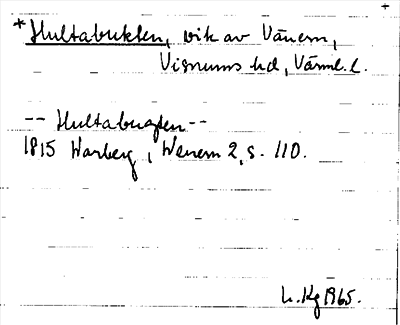 +
*Hultabukten, vik av Vänern,
Visnums hd, Värml. l.
-- Hultabugten --
1815 Warberg, Wenern 2, s. 110.
L. Kg 1965.